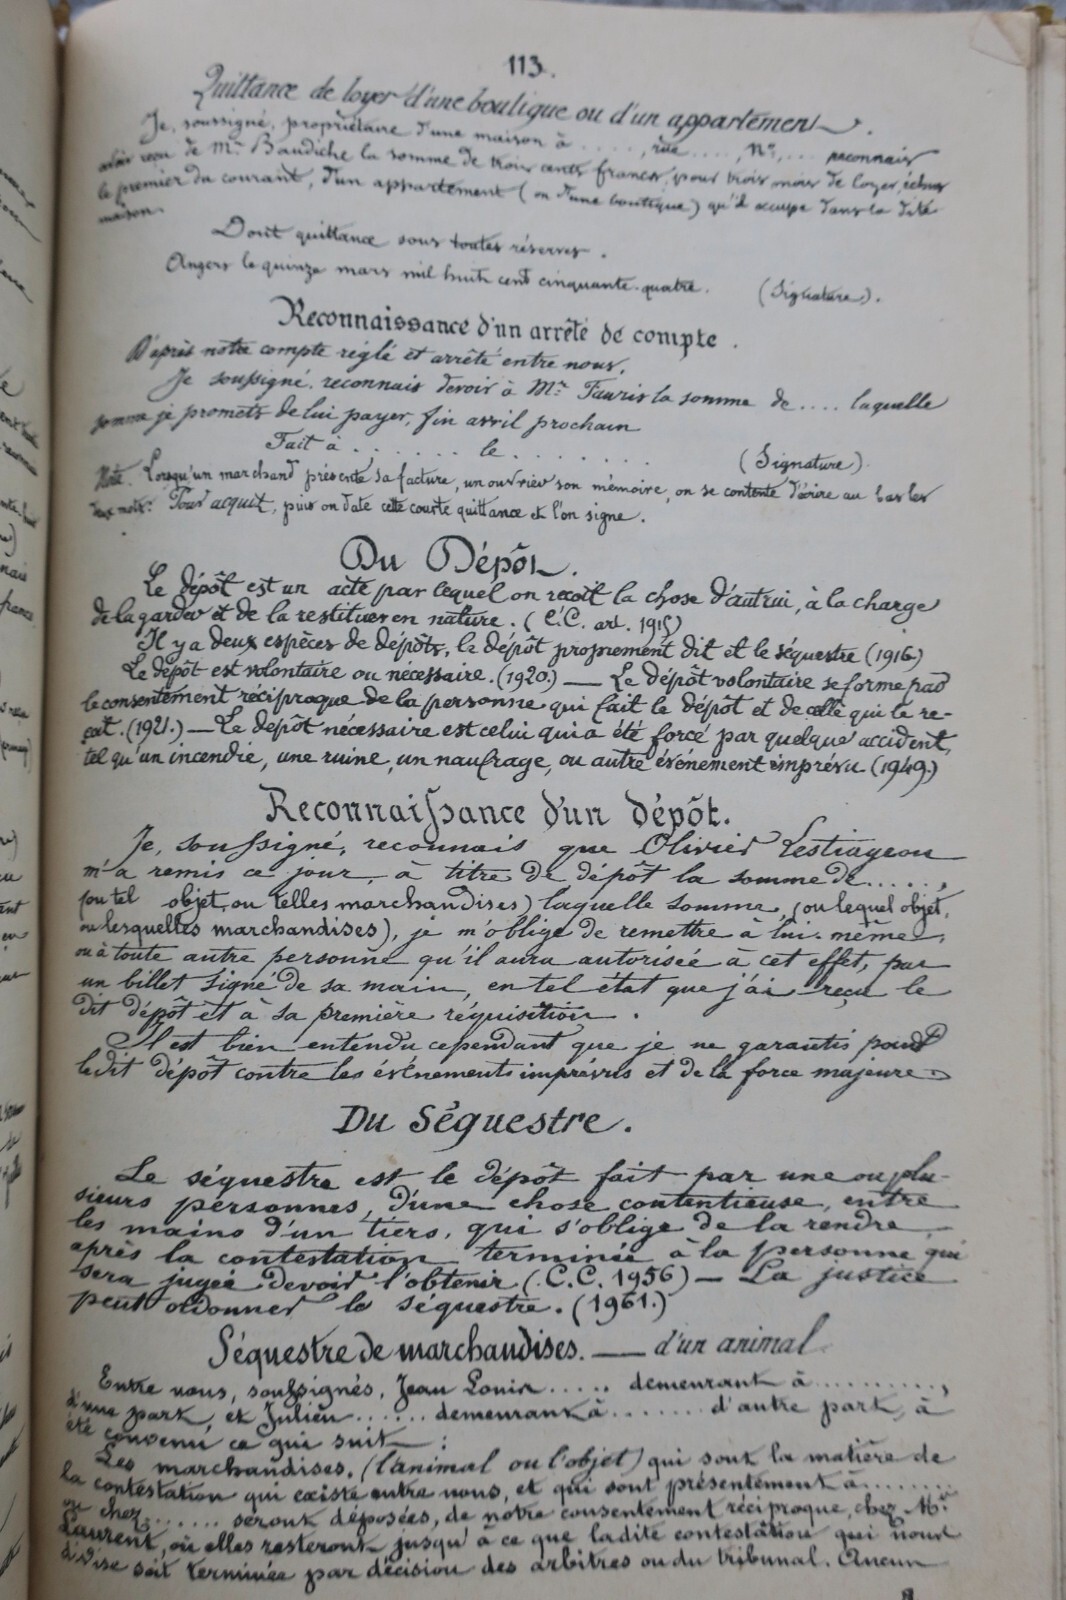 113.
Quittance de loyer d'une boutique ou d'un appartement.
Je, soussigné, propriétaire d'une maison à ...., rue ...., N°, ... reconnais
avoir reçu de Mr Baudiche la somme de trois cents francs, pour trois mois de loyer, échus
le premier du courant, d'un appartement (ou d'une boutique) qu'il occupe dans la dite
maison.
Dont quittance sous toutes réserves.
Angers le quinze mars mil huit cent cinquante-quatre. (Signature).
Reconnaissance d'un arrêté de compte.
D'après notre compte réglé et arrêté entre nous,
Je soussigné, reconnais devoir à Mr Tauris la somme de .... laquelle
somme je promets de lui payer, fin avril prochain
Fait à ....... le ........ (Signature).
Note. Lorsqu'un marchand présente sa facture, un ouvrier son mémoire, on se contente d'écrire au bas les
deux mots: Pour acquit, puis on date cette courte quittance et l'on signe.
Du Dépôt.
Le dépôt est un acte par lequel on reçoit la chose d'autrui, à la charge
de la garder et de la restituer en nature. (C.C. art. 1915)
Il y a deux espèces de dépôts, le dépôt proprement dit et le séquestre (1916)
Le dépôt est volontaire ou nécessaire. (1920.) — Le dépôt volontaire se forme par
le consentement réciproque de la personne qui fait le dépôt et de celle qui le re-
çoit. (1921.) — Le dépôt nécessaire est celui qui a été forcé par quelque accident,
tel qu'un incendie, une ruine, un naufrage, ou autre événement imprévu. (1949.)
Reconnaissance d'un dépôt.
Je, soussigné, reconnais que Olivier Lestiageon
m'a remis ce jour, à titre de dépôt la somme de ......,
(ou tel objet, ou telles marchandises) laquelle somme, (ou lequel objet,
ou lesquelles marchandises), je m'oblige de remettre à lui-même,
ou à toute autre personne qu'il aura autorisée à cet effet, par
un billet signé de sa main, en tel état que j'ai reçu le
dit dépôt et à sa première réquisition.
Il est bien entendu cependant que je ne garantis point
le dit dépôt contre les événements imprévus et de la force majeure.
Du Séquestre.
Le séquestre est le dépôt fait par une ou plu-
sieurs personnes, d'une chose contentieuse, entre
les mains d'un tiers, qui s'oblige de la rendre,
après la contestation terminée à la personne qui
sera jugée devoir l'obtenir (C.C. 1956) — La justice
peut ordonner le séquestre. (1961.)
Séquestre de marchandises. — d'un animal
Entre nous, soussignés, Jean Louis ..... demeurant à ..........,
d'une part, et Julien ...... demeurant à ....... d'autre part, à
été convenu ce qui suit :
Les marchandises, (l'animal ou l'objet) qui sont la matière de
la contestation qui existe entre nous, et qui sont présentement à ........
ou chez ....... seront déposées, de notre consentement réciproque, chez Mr
Laurent, où elles resteront jusqu'à ce que ladite contestation qui nous
divise soit terminée par décision des arbitres ou du tribunal. Aucun
8